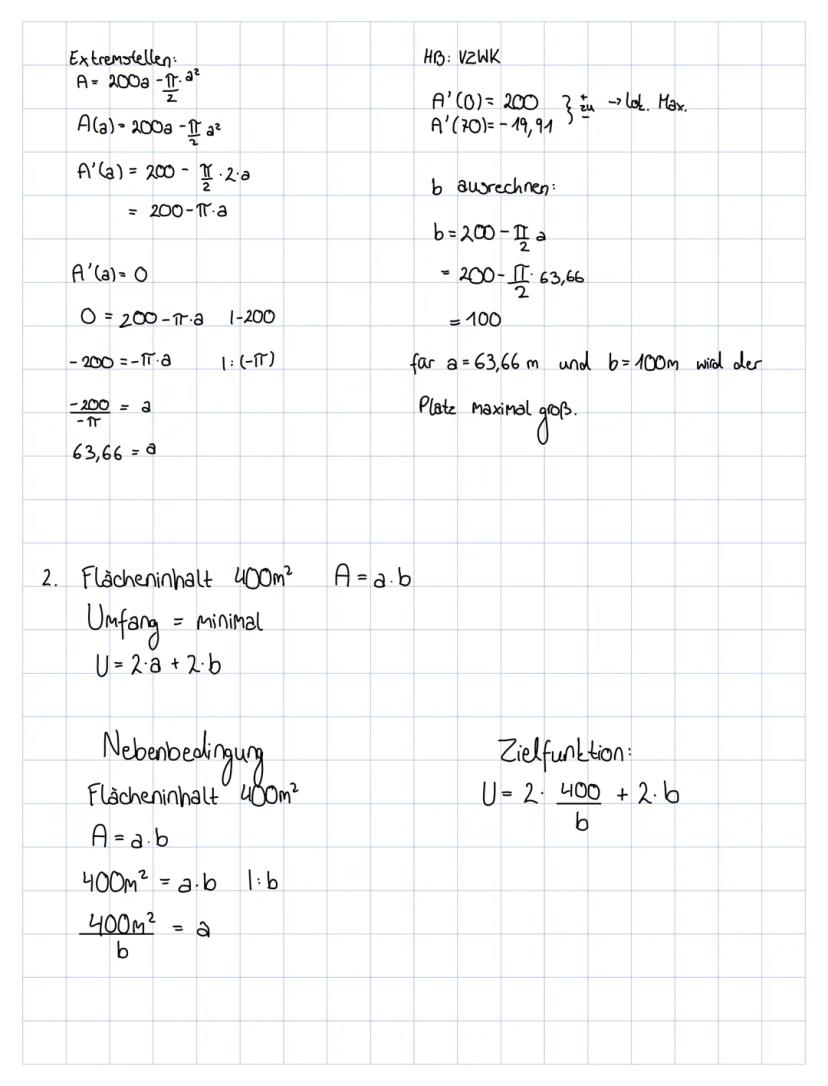 Extremstellen:
A = 200a - π/2 · a²
A(a) = 200a - π/2 a²
A'(a) = 200 - π/2 · 2·a
= 200 - π·a
A'(a) = 0
0 = 200 - π·a |-200
-200 = -π·a |:(-π)
-200/-π = a
63,66 = a
HB: VZWK
A'(0) = 200 } + zu - → lok. Max.
A'(70) = -19,91
b ausrechnen:
b = 200 - π/2 a
= 200 - π/2 · 63,66
= 100
für a = 63,66 m und b = 100m wird der
Platz maximal groß.
2. Flächeninhalt 400m² A = a·b
Umfang = minimal
U = 2·a + 2·b
Nebenbedingung
Flächeninhalt 400m²
A = a·b
400m² = a·b |:b
400m²/b = a
Zielfunktion:
U = 2· 400/b + 2·b